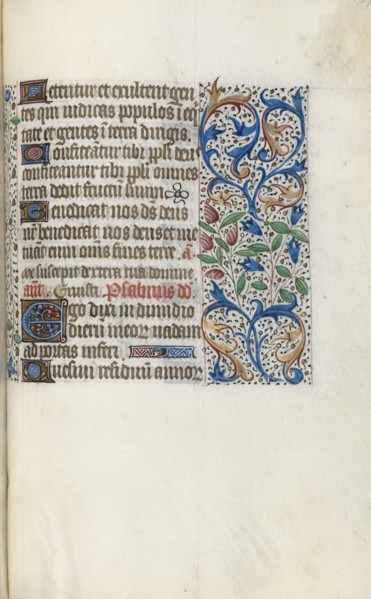 Letentur et exultent gen
tes qm iudicas populos i eq
tate et gentes i terra dirigis
Confiteantur tibi ppli deus
confiteantur tibi ppli omnes
terra dedit fructum suum
Benedicat nos ds deus
nr benedicat nos deus et me
tuant eum omnes fines terre a
ex suscepit dextera tua domine
ant Psalmus
Ego dixi in dimidio
dierum meorum uadam
ad portas inferi
Quesiui residuum annorum